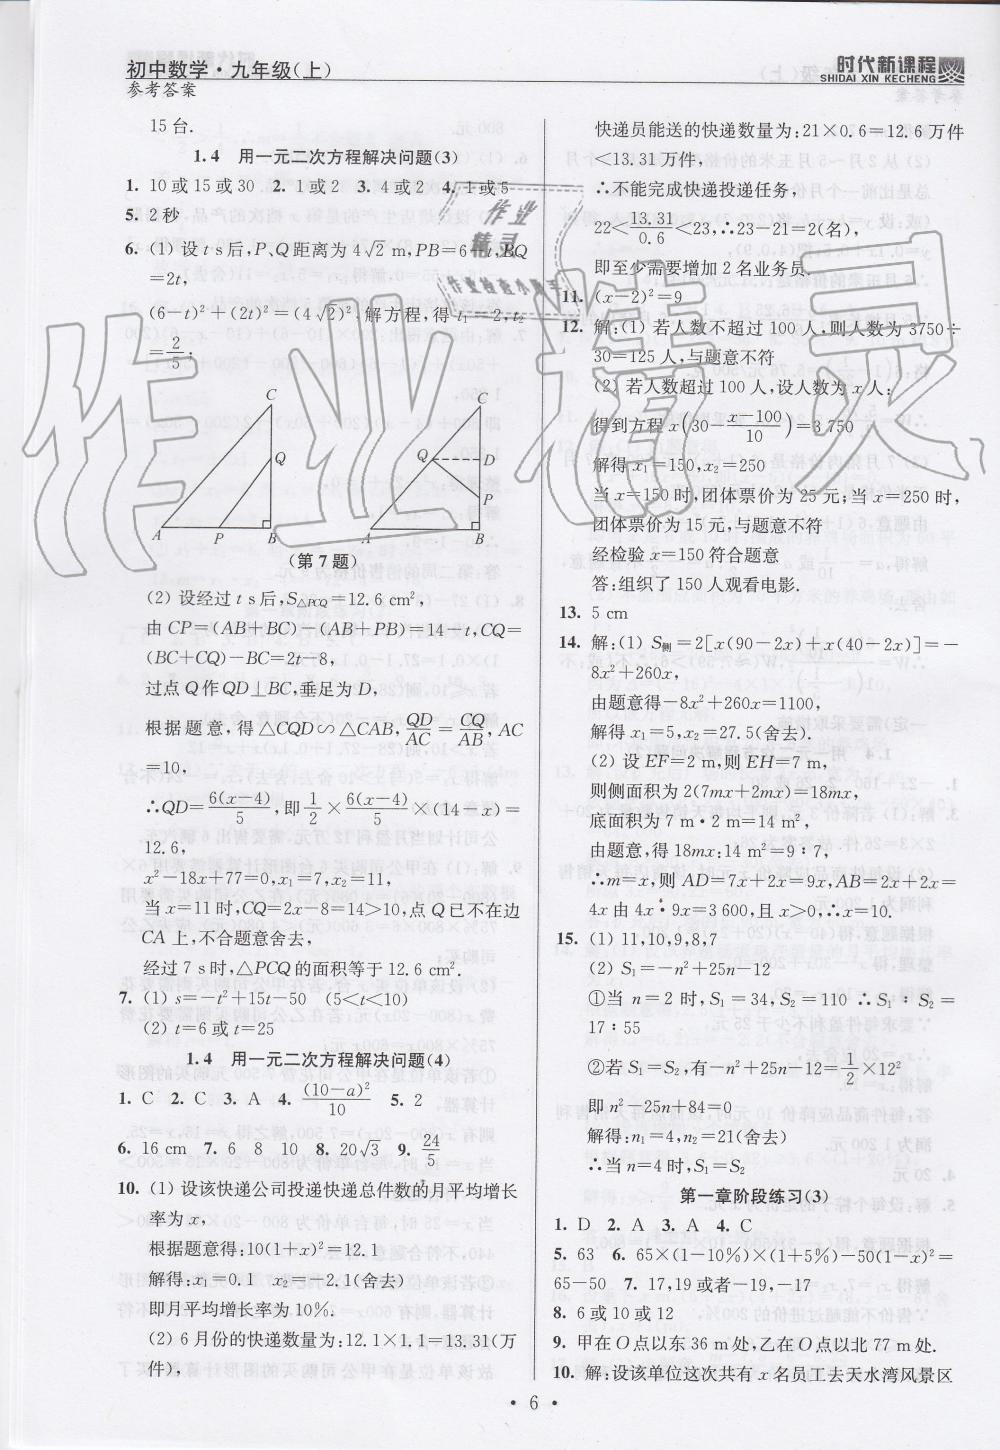 初中数学·九年级(上)
参考答案
时代新课程
SHIDAI XIN KECHENG
15台.
1.4 用一元二次方程解决问题(3)
1. 10或15或30 2. 1或2 3. 4或2 4. 十或5
5. 2秒
6. (1) 设 t s后,P、Q距离为 4√2 m,PB=6-t,BQ
=2t,
(6-t)²+(2t)²=(4√2)². 解方程,得 t₁=2,t₂
=2/5;
C
Q
A P B
C
Q D
P
A B
(第7题)
(2) 设经过 t s后,S△PCQ=12.6 cm²,
由 CP=(AB+BC)-(AB+PB)=14-t,CQ=
(BC+CQ)-BC=2t-8,
过点 Q作 QD⊥BC,垂足为 D,
根据题意,得△CQD∽△CAB,QD/AC=CQ/AB,AC
=10,
∴QD=6(x-4)/5,即 1/2×6(x-4)/5×(14-x)=
12.6,
x²-18x+77=0,x₁=7,x₂=11,
当 x=11时,CQ=2x-8=14>10,点Q已不在边
CA上,不合题意舍去,
经过 7 s时,△PCQ的面积等于 12.6 cm².
7. (1) s=-t²+15t-50 (5<t<10)
(2) t=6或 t=25
1.4 用一元二次方程解决问题(4)
1. C 2. C 3. A 4. (10-a)²/10 5. 2
6. 16 cm 7. 6 8 10 8. 20√3 9. 24/5
10. (1) 设该快递公司投递快递总件数的月平均增长
率为 x,
根据题意得:10(1+x)²=12.1
解得:x₁=0.1 x₂=-2.1(舍去)
即月平均增长率为10%.
(2) 6月份的快递数量为:12.1×1.1=13.31(万
件),
快递员能送的快递数量为:21×0.6=12.6万件
<13.31万件,
∴不能完成快递投递任务,
22<13.31/0.6<23,∴23-21=2(名),
即至少需要增加2名业务员.
11. (x-2)²=9
12. 解:(1) 若人数不超过100人,则人数为3750÷
30=125人,与题意不符
(2) 若人数超过100人,设人数为 x人:
得到方程 x(30-(x-100)/10)=3 750
解得 x₁=150,x₂=250
当 x=150时,团体票价为25元;当 x=250时,
团体票价为15元,与题意不符
经检验 x=150符合题意
答:组织了150人观看电影.
13. 5 cm
14. 解:(1) S侧=2[x(90-2x)+x(40-2x)]=-
8x²+260x,
由题意得-8x²+260x=1100,
解得 x₁=5,x₂=27.5(舍去).
(2) 设 EF=2 m,则 EH=7 m,
则侧面积为 2(7mx+2mx)=18mx,
底面积为 7 m·2 m=14 m²,
由题意,得 18mx:14 m²=9:7,
∴m=x,则 AD=7x+2x=9x,AB=2x+2x=
4x由 4x·9x=3 600,且 x>0,∴x=10.
15. (1) 11,10,9,8,7
(2) S₁=-n²+25n-12
①当 n=2时,S₁=34,S₂=110 ∴S₁:S₂=
17:55
②若 S₁=S₂,有-n²+25n-12=1/2×12²
即 n²-25n+84=0
解得:n₁=4,n₂=21(舍去)
∴当 n=4时,S₁=S₂
第一章阶段练习(3)
1. D 2. A 3. A 4. C
5. 63 6. 65×(1-10%)×(1+5%)-50(1-x)²=
65-50 7. 17,19或者-19,-17
8. 6或10或12
9. 甲在O点以东36 m处,乙在O点以北77 m处.
10. 解:设该单位这次共有 x名员工去天水湾风景区
·6·
作业精灵